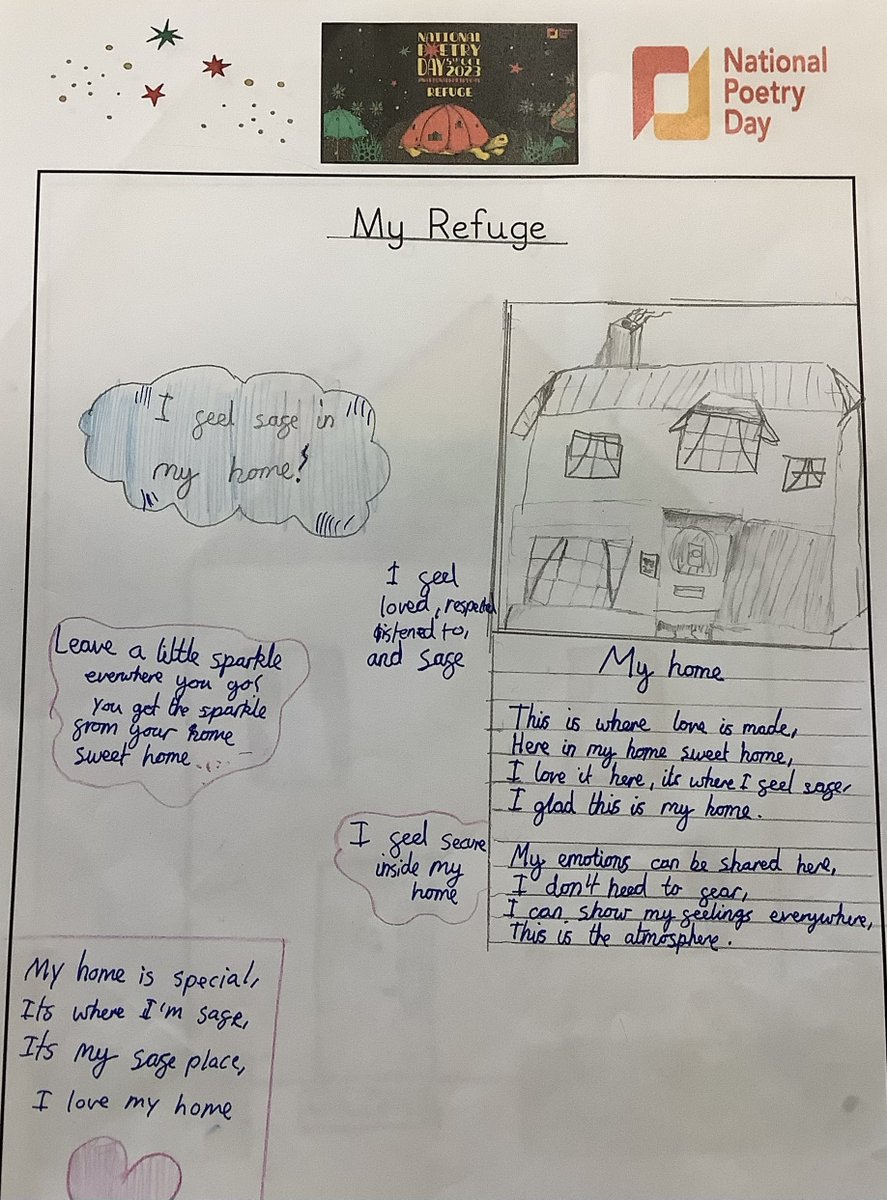 NATIONAL
POETRY
DAY 5TH OCT
2023
REFUGE
National
Poetry
Day
My Refuge
I feel safe in
my home!
I feel
loved, respected
listened to,
and safe
Leave a little sparkle
everwhere you go!
You get the sparkle
from your home
sweet home
I feel secure
inside my
home
My home is special,
Its where I'm safe,
Its my safe place,
I love my home
My home
This is where love is made,
Here in my home sweet home,
I love it here, its where I feel safe,
I glad this is my home.
My emotions can be shared here,
I don't need to fear,
I can show my feelings everywhere,
This is the atmosphere.